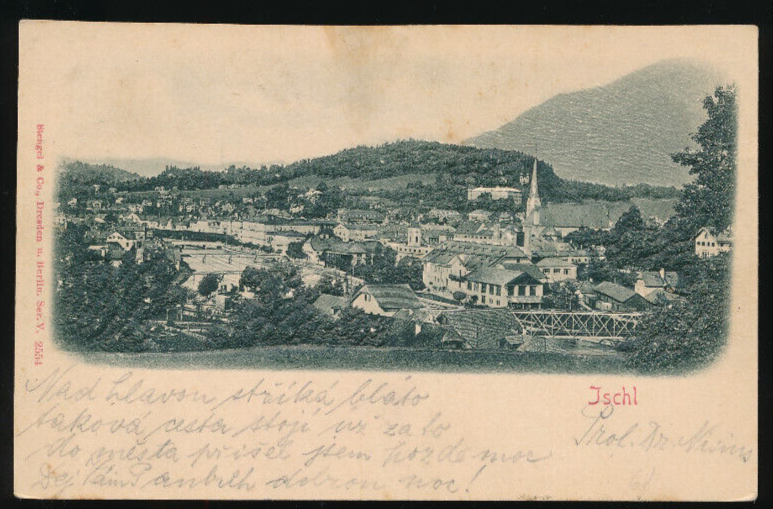 Stengel & Co., Dresden u. Berlin. Ser. V. 2554
Ischl
Nad hlavou stříká bláto
taková cesta stojí už za to
do města přišel jsem pozdě moc
Dej Vám Pánbůh dobrou noc!
Prof. Dr.